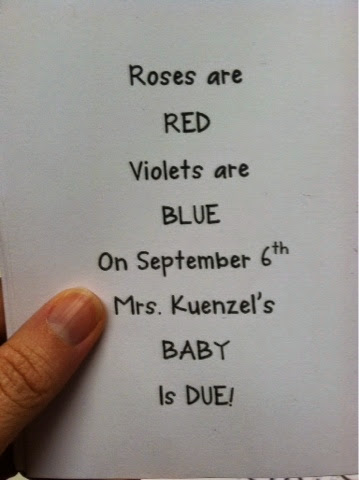 Roses are
RED
Violets are
BLUE
On September 6th
Mrs. Kuenzel's
BABY
Is DUE!